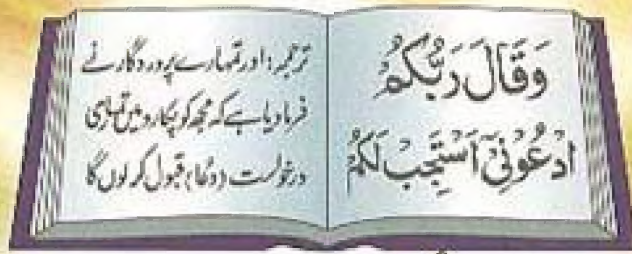 وَقَالَ رَبُّكُمُ
ادْعُوْنِیْۤ اَسْتَجِبْ لَكُمْ
ترجمہ: اور تمہارے پروردگار نے
فرما دیا ہے کہ مجھ کو پکارو میں تمہاری
درخواست (دُعا) قبول کر لوں گا